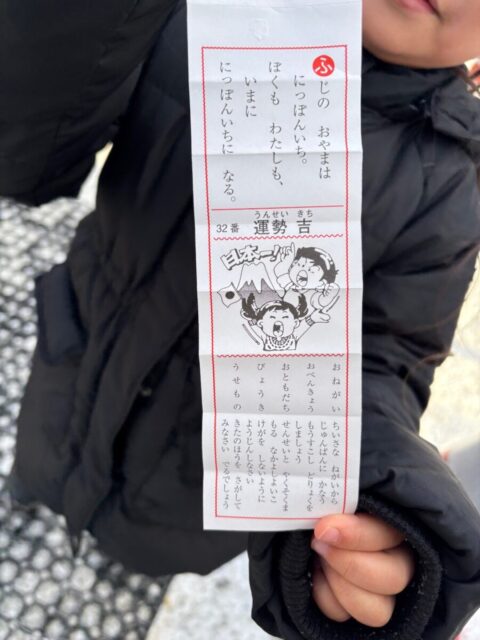 ふじの おやまは
にっぽんいち。
ぼくも わたしも、
いまに
にっぽんいちに なる。
うんせい きち
32番 運勢 吉
日本一!
おねがい ちいさな ねがいから
じゅんばんに かなう
おべんきょう もうすこし どりょくを
しましょう
おともだち せんせいと やくそくま
もる なかよしよいこ
びょうき けがを しないように
ようじんしなさい
うせもの きたのほうを さがして
みなさい でるでしょう